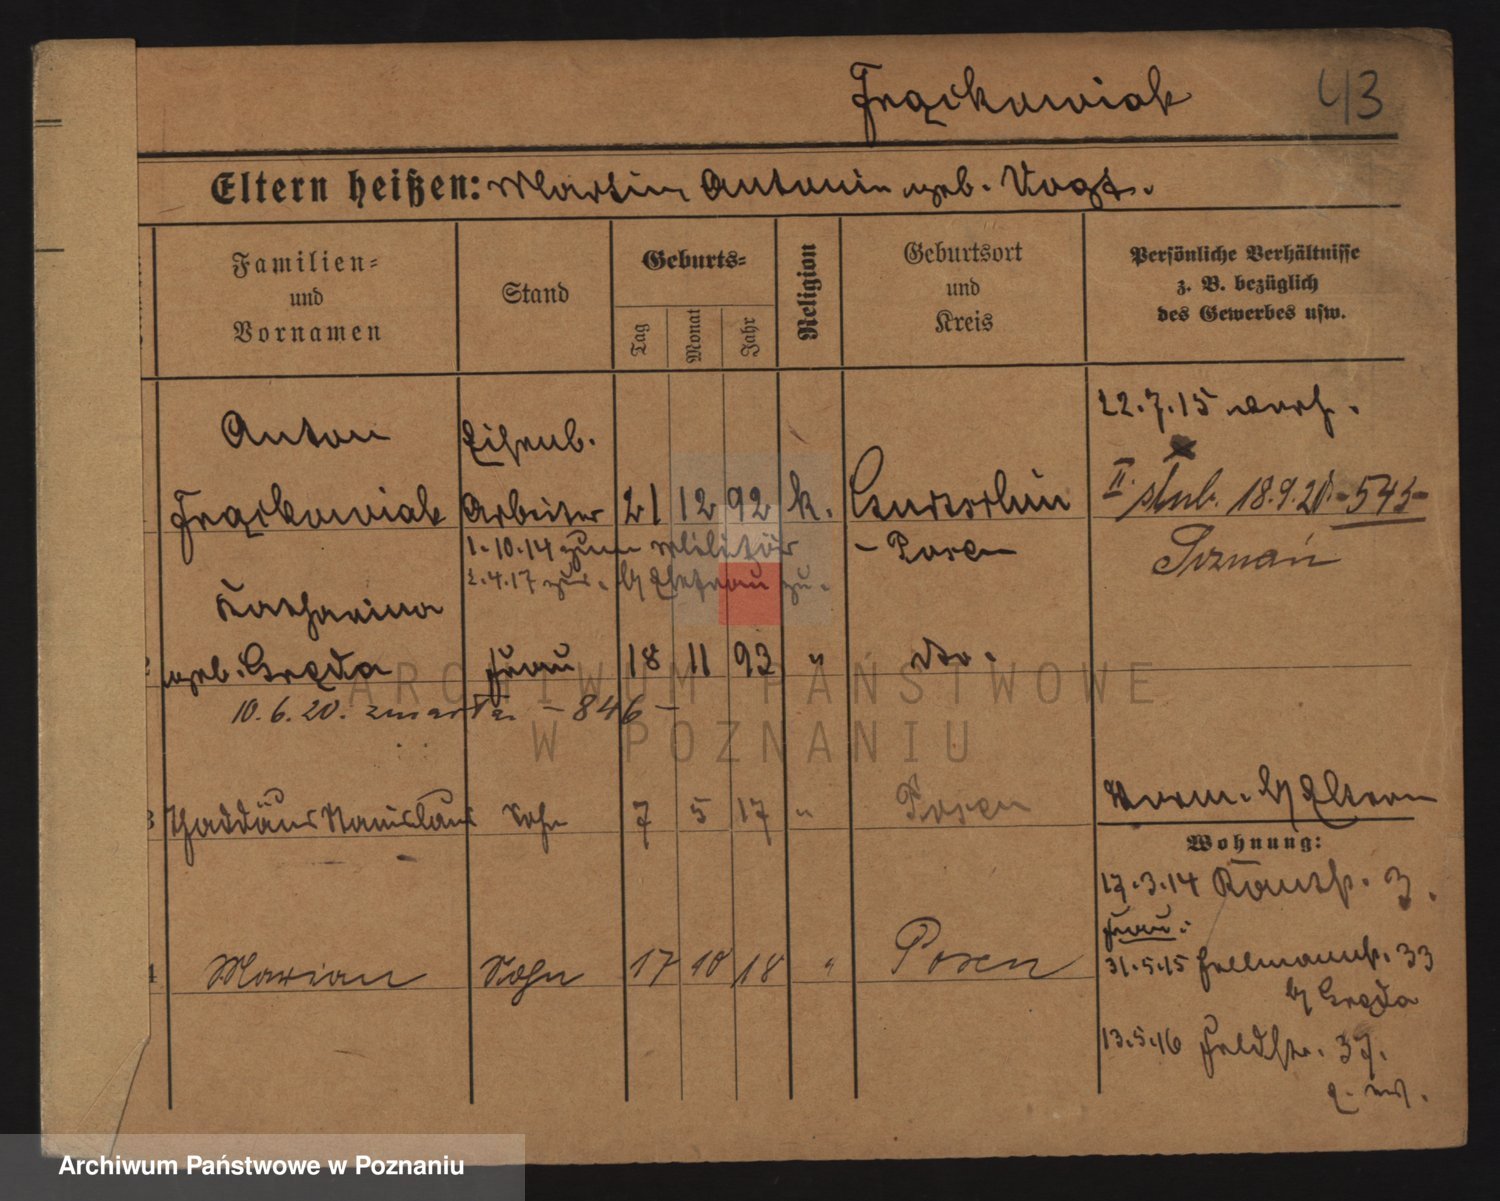 Frąckowiak 43
Eltern heißen: Martin Antonin geb. Vogt.
Familien-
und
Vornamen
Stand
Geburts-
Tag
Monat
Jahr
Religion
Geburtsort
und
Kreis
Persönliche Verhältnisse
z. B. bezüglich
des Gewerbes usw.
22.7.15 verh.
Anton Eisenb.
Frąckowiak Arbeiter 21 12 92 k.
II. 18.9.20 -545-
1.10.14 zum Militär - Posen Poznań
2.4.17 zur. b/ Ehefrau zu.
Katharina
geb. Gręda Frau 18 11 93 " dto.
10.6.20. zmarła - 846 -
Thaddäus Stanislaus Sohn 7 5 17 " Posen
Vorm. b/ Eltern
Wohnung:
17.3.14 3.
Frau:
4 Marian Sohn 17 10 18 " Posen
31.5.15 Hellmannstr. 33
b/ Gręda
13.5.16 Feldstr. 37.
ARCHIWUM PAŃSTWOWE
W POZNANIU
Archiwum Państwowe w Poznaniu